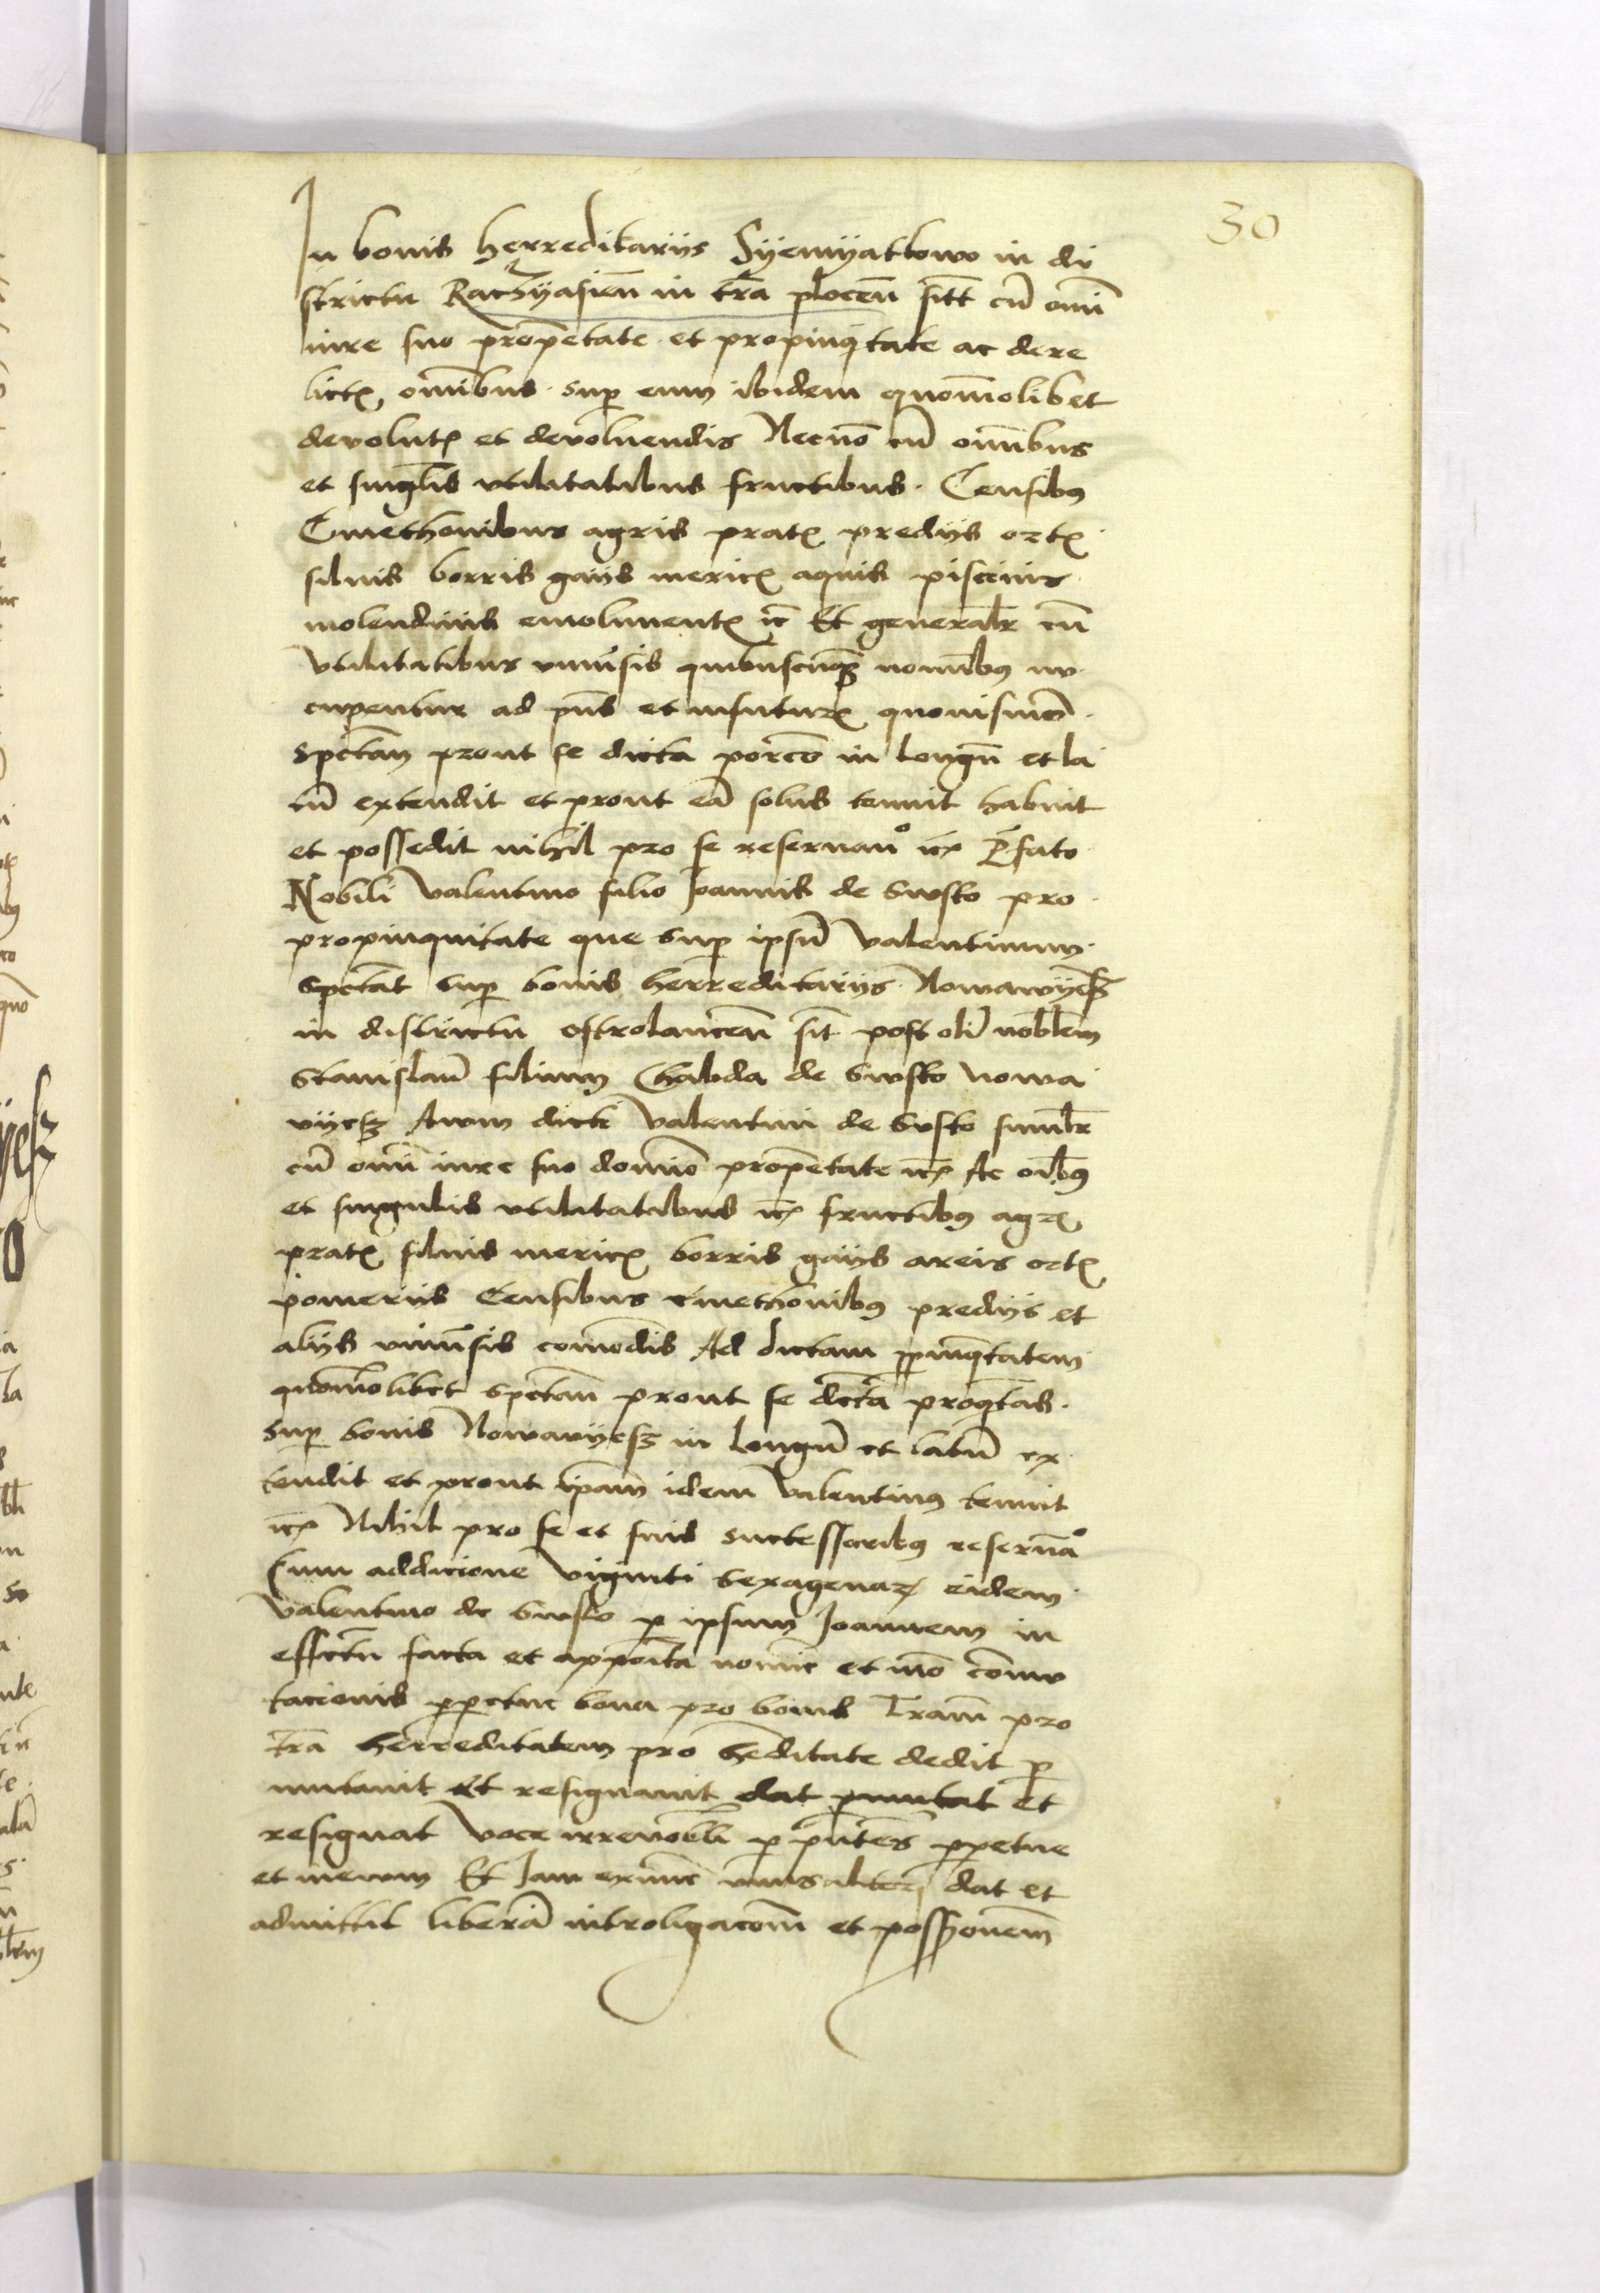 30
In bonis herreditariis Syemyattowo in di
strictu Raczyasien in tra plocen sitt cu omi
iure suo propetate et propinqtate ac dere
lict omibus sup eum ibidem quomolibet
devolut et devoluendis Necno cu omibus
et singlis vtilitatibus fructibus Censibus
Cmethonibus agris prat prediis ort
siluis borris gaiis meric aquis piscinis
molendinis emolument tc Et generalr cu
vtilitatibus vniusis quibuscuqz nomibus nu
cupentur ad pns et in futur quouismo
spectan prout se dicta porcio in longu et la
tu extendit et prout ea solus tenuit habuit
et possedit nihil pro se reseruano tc Pfato
Nobili Valentino filio Joannis de Susko pro
propinquitate que sup ipsu Valentinum
spectat sup bonis herreditariis Nowawyesz
in districtu ostrolancen sit post oli nobilem
Stanislau filium Chabda de Susko Nowa
vyesz Auum dicti Valentini de Susko similr
cu omi iure suo domio propetate tc Ac oibus
et singulis vtilitatibus tc fructibus agr
prat siluis meric borris gaiis areis ort
pomeriis Censibus Cmethonibus prediis et
aliis vniusis comodis Ad dictam ppinqtatem
quomolibet spectan prout se dcta proqtas
sup bonis Nowavyesz in longu et latu ex
tendit et prout ipam idem Valentinus tenuit
tc Nihil pro se et suis successoribus reseruao
Cum addicione viginti sexagenar eidem
Valentino de Susko p ipsum Joannem in
effectu facta et apposita nomie et mo comu
tacionis ppetue bona pro bonis Tram pro
tra herreditatem pro heditate dedit p
mutauit Et resignauit dat pmutat et
resignat Voce irreuocbli p pntes ppetue
et in euum Et Jam exnunc dat et
admittit libera introligacom et possyonem